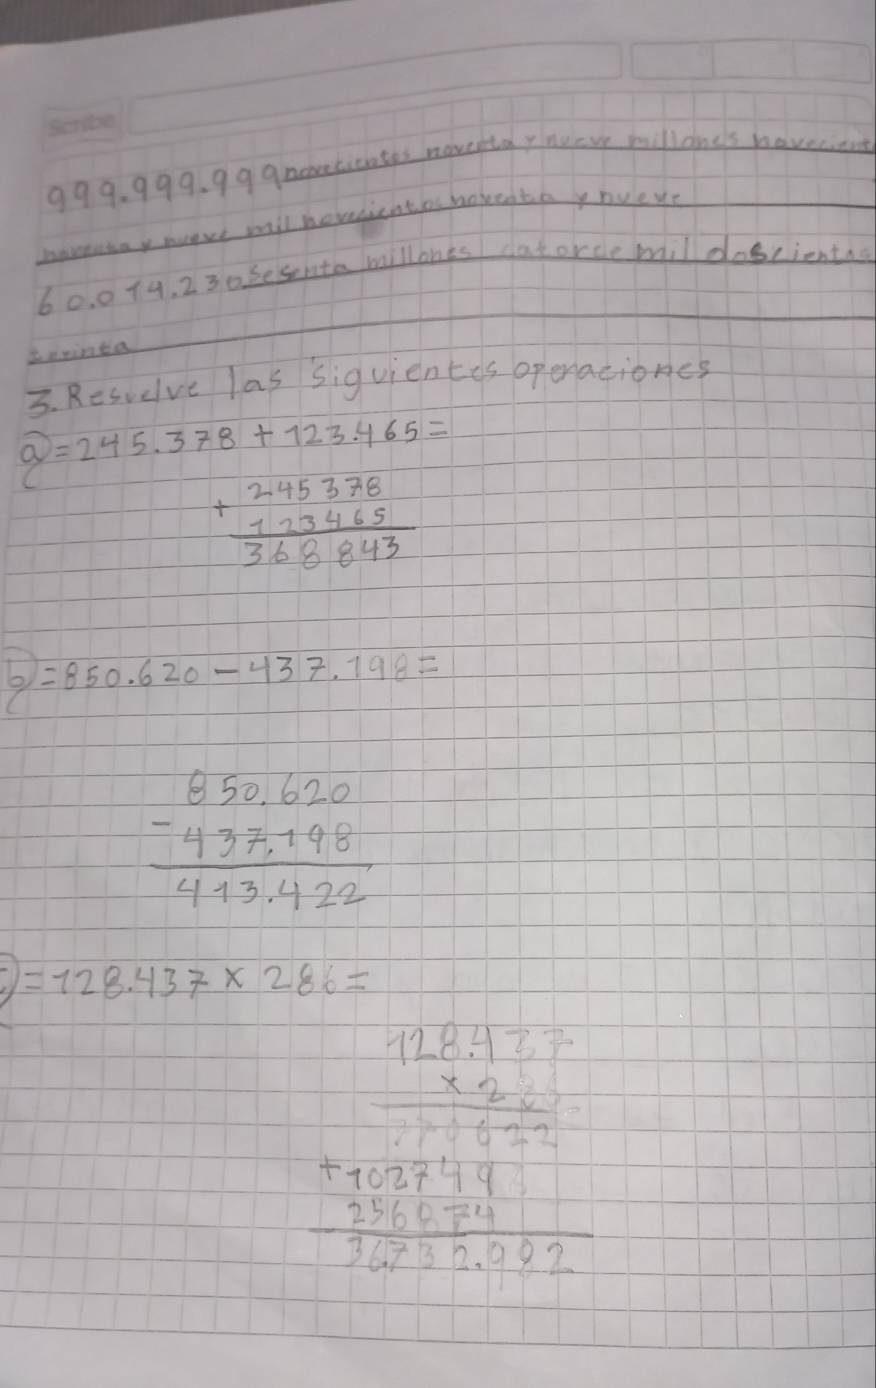 Scribe
999.999.999 novecientos noventa y nueve millones novecient
noventa y nueve mil novecientos noventa y nueve
60.014.230 Sesenta millones catorce mil doscientos
treinta
3. Resuelve las siguientes operaciones
a) = 245.378 + 123.465 =
+ 245378
123465
368843
b) = 850.620 - 437.198 =
850.620
- 437.198
413.422
c) = 128.437 x 286 =
128.437
x 286
770622
+ 102749
256874
36.732.982